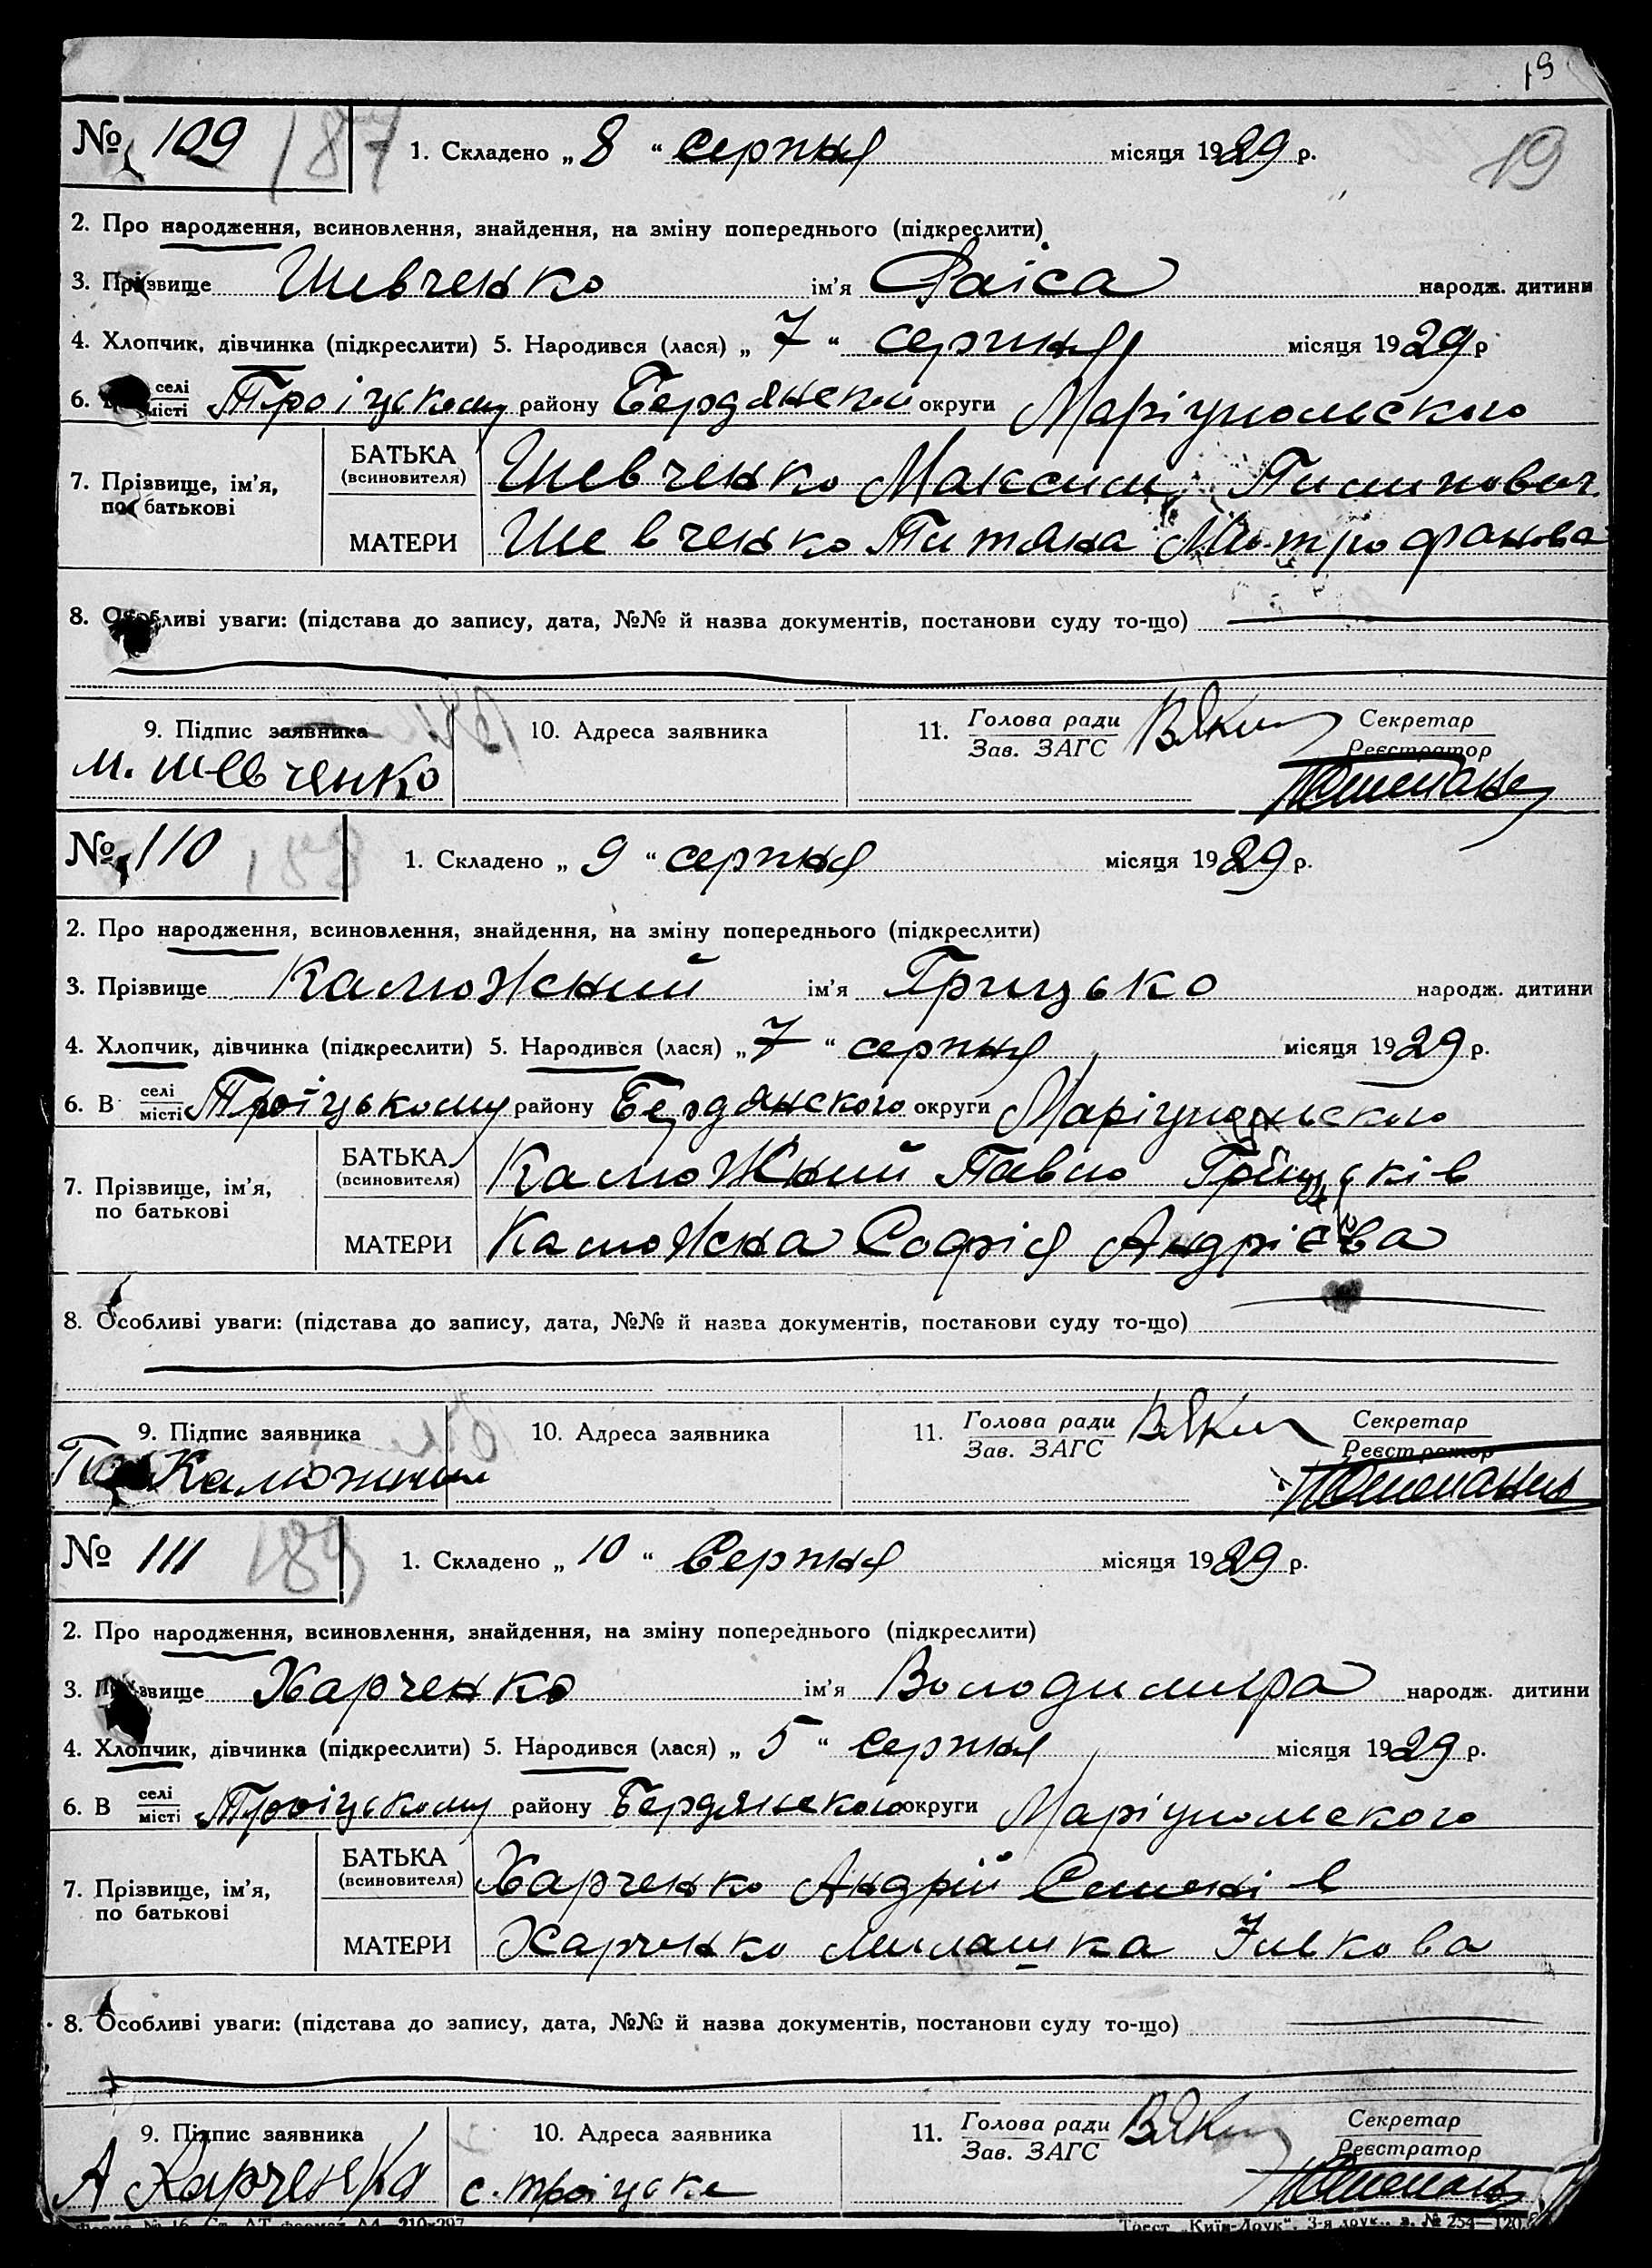 19
№ 109 187 1. Складено „ 8 “ серпня місяця 1929 р. 19
2. Про народження, всиновлення, знайдення, на зміну попереднього (підкреслити)
3. Прізвище Шевченко ім'я Раіса народж. дитини
4. Хлопчик, дівчинка (підкреслити) 5. Народився (лася) „ 7 “ серпня місяця 1929 р
6. селі
місті Троіцькому району Бердянської округи Маріупольского
7. Прізвище, ім'я, по батькові
БАТЬКА (всиновителя) Шевченко Максим Тиминович
МАТЕРИ Шевченко Титяна Митрофанова
8. Особливі уваги: (підстава до запису, дата, №№ й назва документів, постанови суду то-що)
9. Підпис заявника 10. Адреса заявника 11. Голова ради
Зав. ЗАГС Секретар
Реєстратор
М. Шевченко
№ 110 188 1. Складено „ 9 “ серпня місяця 1929 р.
2. Про народження, всиновлення, знайдення, на зміну попереднього (підкреслити)
3. Прізвище Калюжний ім'я Грицько народж. дитини
4. Хлопчик, дівчинка (підкреслити) 5. Народився (лася) „ 7 “ серпня місяця 1929 р.
6. В селі
місті Троіцькому району Бердянского округи Маріупольского
7. Прізвище, ім'я, по батькові
БАТЬКА (всиновителя) Калюжний Павло Грицьків
МАТЕРИ Калюжна Софія Андрієва
8. Особливі уваги: (підстава до запису, дата, №№ й назва документів, постанови суду то-що)
9. Підпис заявника 10. Адреса заявника 11. Голова ради
Зав. ЗАГС Секретар
Реєстратор
Калюжний
№ 111 189 1. Складено „ 10 “ Серпня місяця 1929 р.
2. Про народження, всиновлення, знайдення, на зміну попереднього (підкреслити)
3. Прізвище Харченко ім'я Володимира народж. дитини
4. Хлопчик, дівчинка (підкреслити) 5. Народився (лася) „ 5 “ Серпня місяця 1929 р.
6. В селі
місті Троіцькому району Бердянского округи Маріупольского
7. Прізвище, ім'я, по батькові
БАТЬКА (всиновителя) Харченко Андрій Семенів
МАТЕРИ Харченко Милашка Ількова
8. Особливі уваги: (підстава до запису, дата, №№ й назва документів, постанови суду то-що)
9. Підпис заявника 10. Адреса заявника 11. Голова ради
Зав. ЗАГС Секретар
Реєстратор
А Харченко с. Троіцьке
Форма № 16. Ст. АТ формат А4—210×297 Трест „Київ-Друк“, 3-я друк., з. № 254—120.